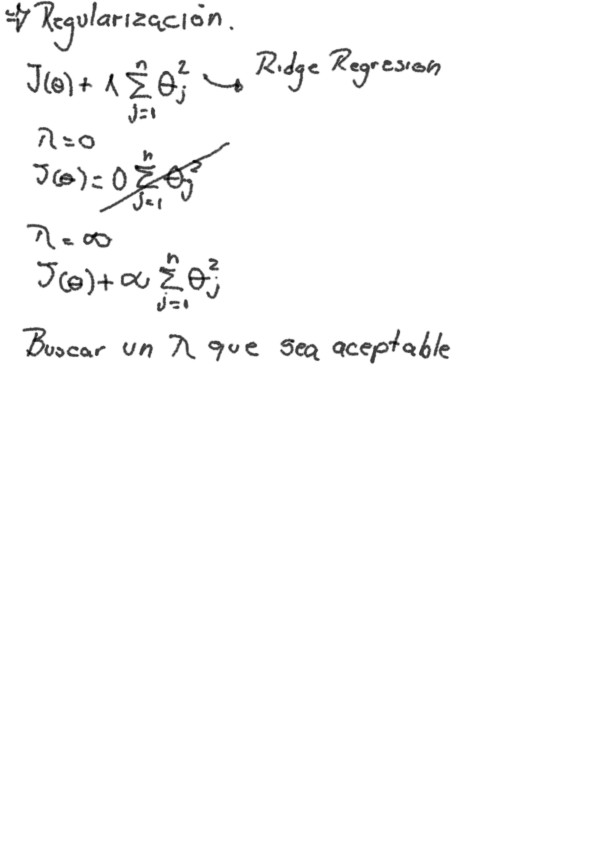 ⇒ Regularización.
J(θ) + λ ∑_{j=1}^{n} θ_j^2 → Ridge Regresion
λ = 0
J(θ) = 0 ∑_{j=1}^{n} θ_j^2
λ = ∞
J(θ) + ∞ ∑_{j=1}^{n} θ_j^2
Buscar un λ que sea aceptable